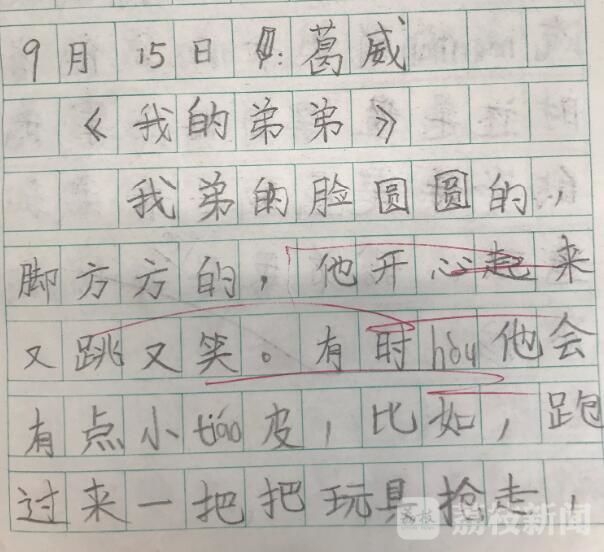 9月15日 葛威
《我的弟弟》
我弟的脸圆圆的，
脚方方的，他开心起来
又跳又笑。有时hòu他会
有点小tiáo皮，比如，跑
过来一把把玩具抢走，
荔枝 荔枝新闻